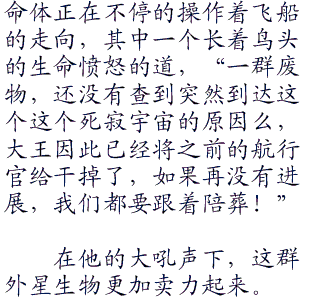 命体正在不停的操作着飞船
的走向，其中一个长着鸟头
的生命愤怒的道，“一群废
物，还没有查到突然到达这
个这个死寂宇宙的原因么，
大王因此已经将之前的航行
官给干掉了，如果再没有进
展，我们都要跟着陪葬！”
在他的大吼声下，这群
外星生物更加卖力起来。